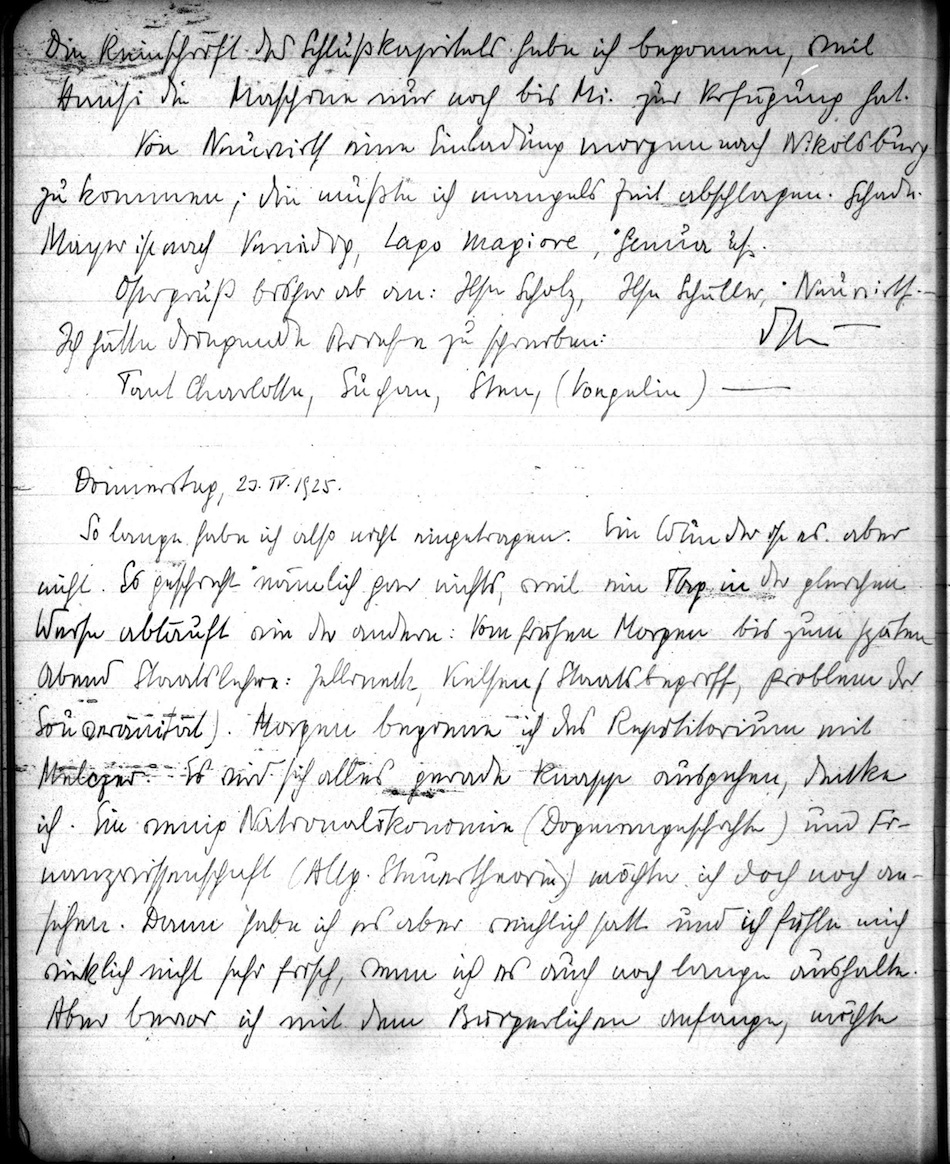 Die Reinschrift des Schlußkapitels habe ich begonnen, weil
Annesi die Maschine nur noch bis Mi. zur Verfügung hat.
Von Neuwirth eine Einladung morgen nach Nikolsburg
zu kommen; die mußte ich mangels Zeit abschlagen. Schade.
Mayer ist nach Venedig, Lago Magiore, Genua etc.
Ostergruß bisher ab an: Ilse Scholz, Ilse Schüller, Neuwirth.
Ich hätte dringende Briefe zu schreiben:
Tant Charlotte, Suchan, Sten, (Vongelin) —
Donnerstag, 23. IV. 1925.
So lange habe ich also nicht eingetragen. Ein Wunder ist es aber
nicht. Es geschieht nämlich gar nichts, weil ein Tag in der gleichen
Weise abläuft wie der andere: Vom frühen Morgen bis zum späten
Abend Staatslehre: Jellinek, Kelsen (Staatsbegriff, Problem der
Souveränität). Morgen beginne ich das Repetitorium mit
Melczer. Es wird sich alles gerade knapp ausgehen, denke
ich. Ein wenig Nationalökonomie (Dogmengeschichte) und Fi-
nanzwissenschaft (Allg. Steuertheorie) möchte ich doch noch an-
sehen. Dann habe ich es aber reichlich satt und ich fühle mich
wirklich nicht sehr frisch, wenn ich es auch noch lange aushalte.
Aber bevor ich mit dem Bürgerlichen anfange, möchte